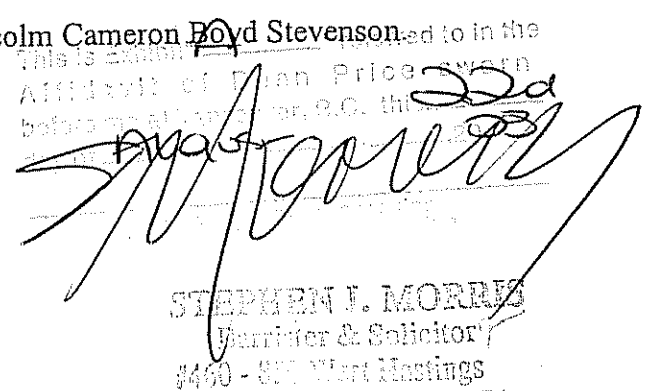 colm Cameron Boyd Stevenson
This is Exhibit A referred to in the
Affidavit of Dean Price sworn
before me at Vancouver, B.C. this 22d
August 03
STEPHEN J. MORRIS
Barrister & Solicitor
#460 - West Hastings